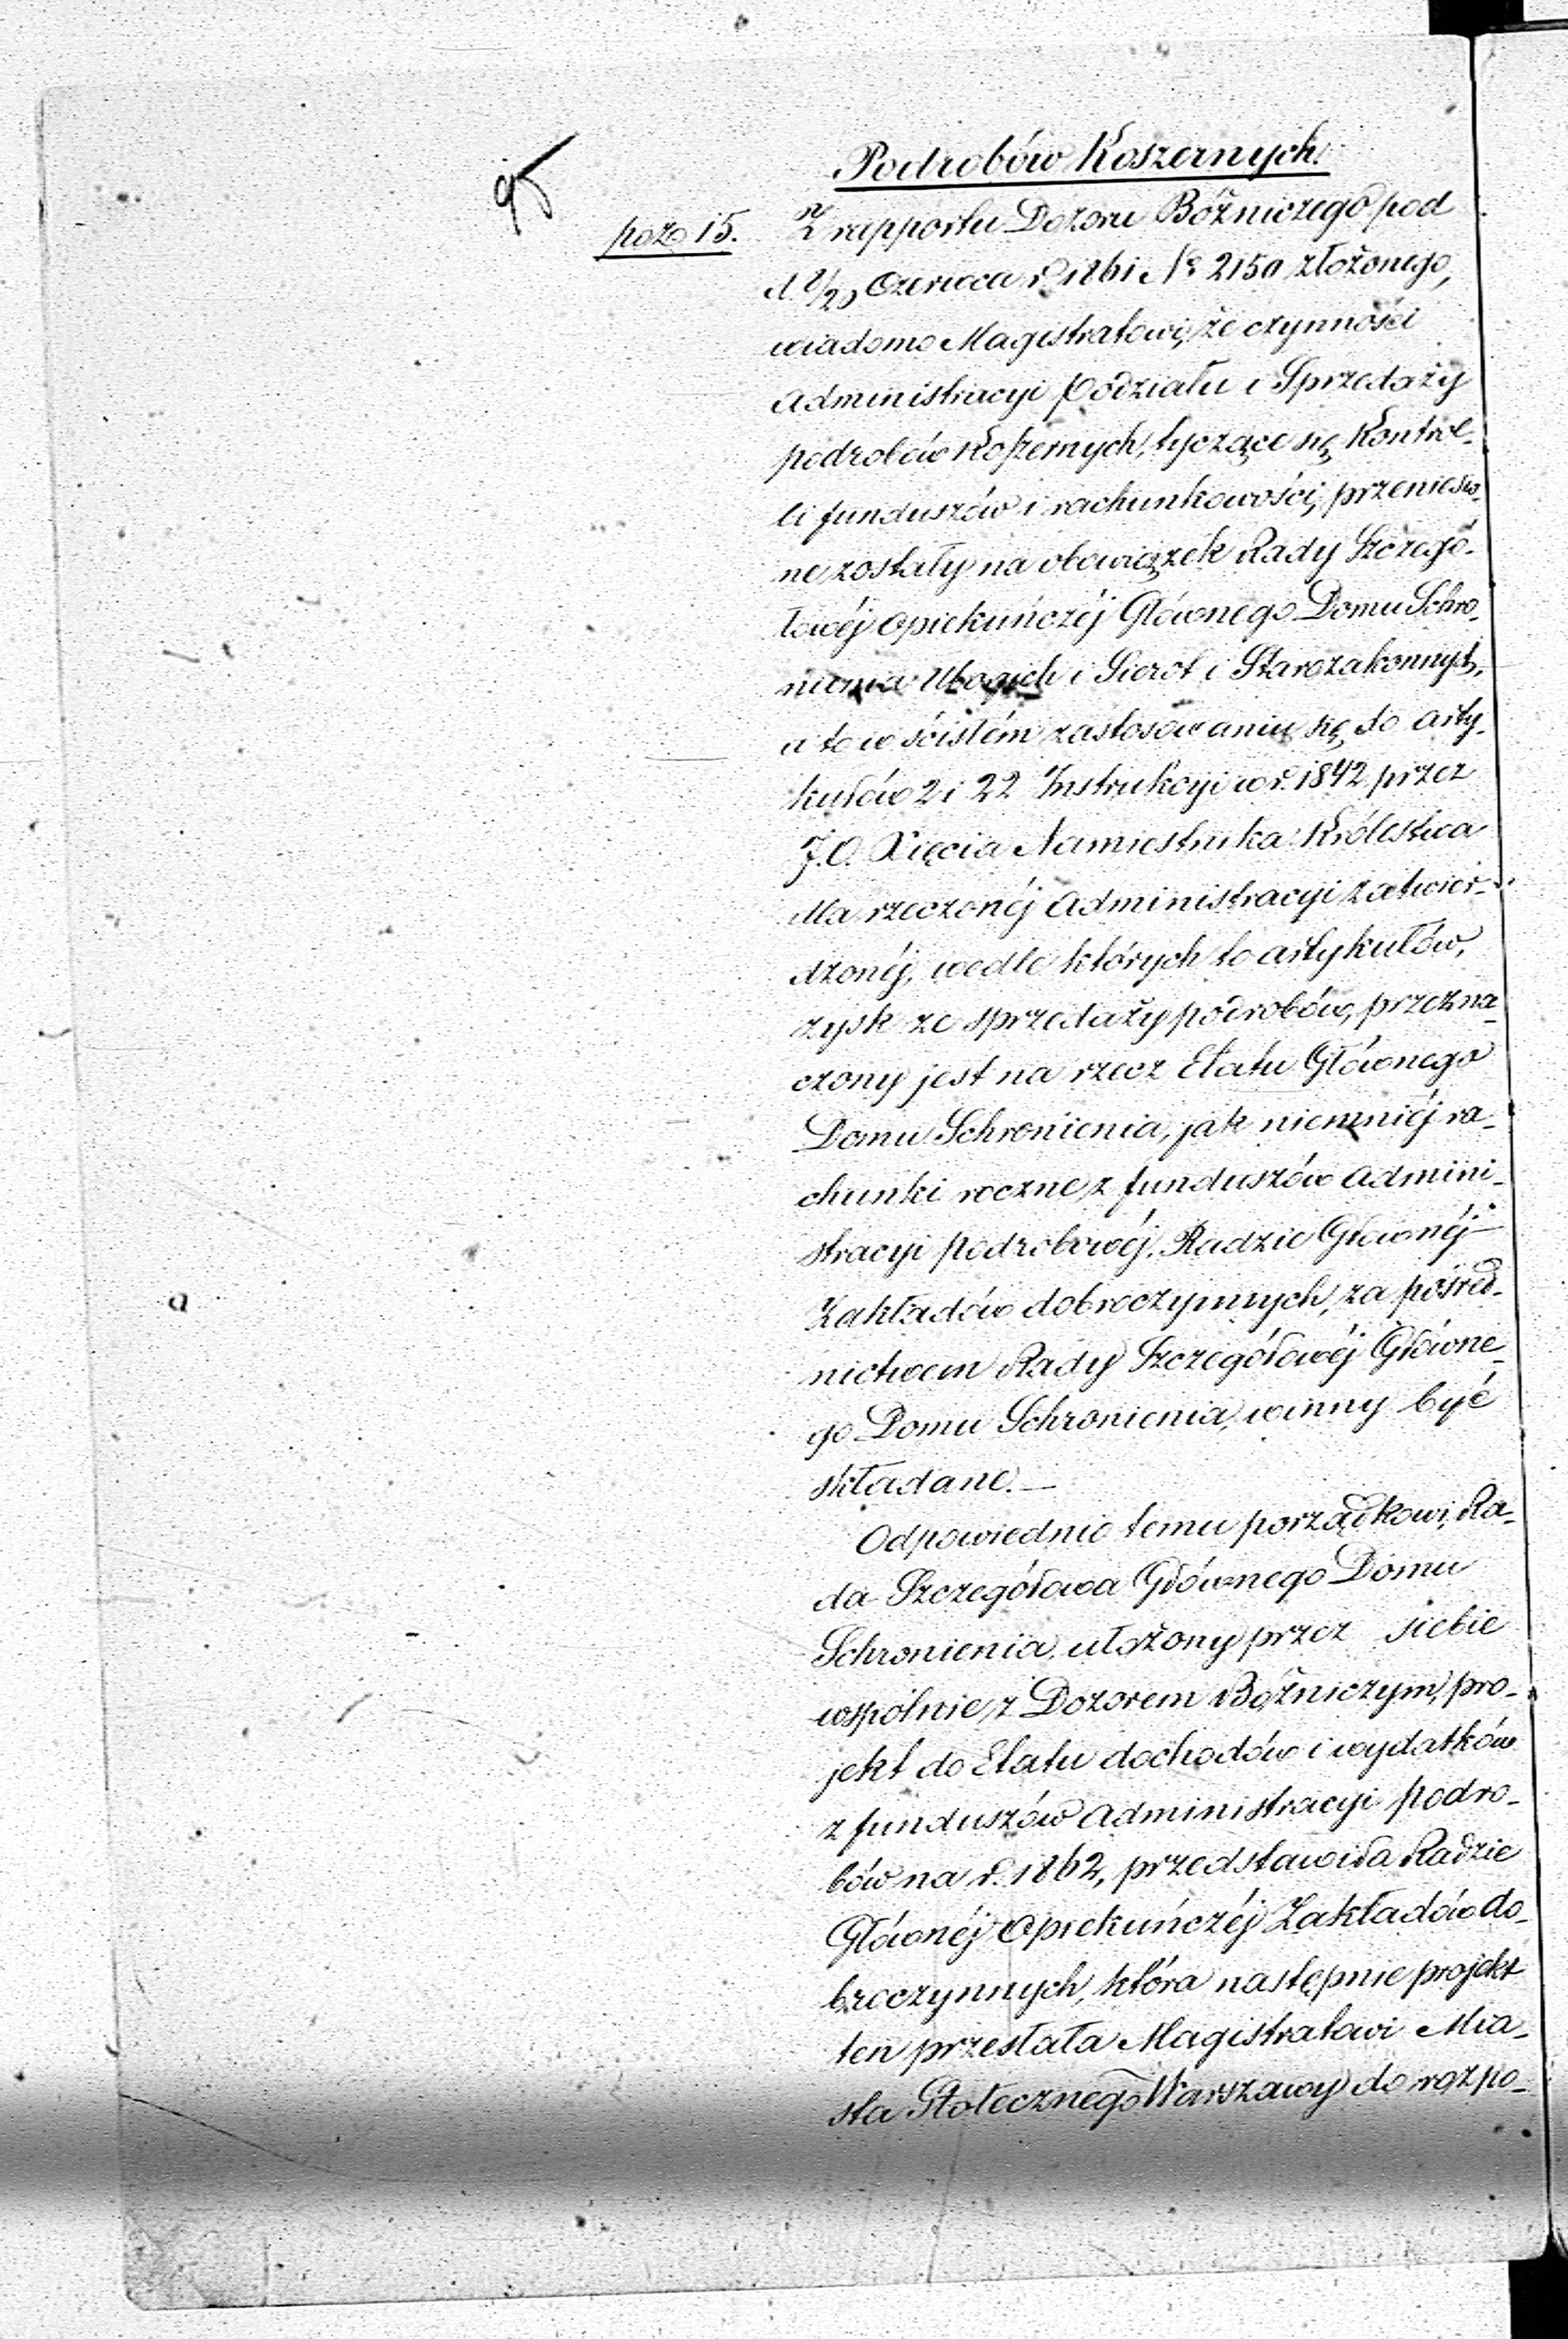 95
Podrobów Koszernych.
poz. 15.
Z rapportu Dozoru Bóżniczego pod
d. 8/20 Czerwca r. 1861 No 2150 złożonego,
wiadomo Magistratowi, że czynności
Administracyi podziału i Sprzedaży
podrobów Koszernych, tyczące się Kontrol-
li funduszów i rachunkowości, przeniesio-
ne zostały na obowiązek Rady Szczegó-
łowéj Opiekuńczéj Głównego Domu Schro-
nienia Ubogich i Sierot i Starozakonnych,
a to w ścisłém zastosowaniu się do arty-
kułów 2 i 22 Instrukcyi w r. 1842 przez
J.O. Xięcia Namiestnika Królestwa
dla rzeczonéj Administracyi zatwier-
dzonéj, wedle których to artykułów,
zysk ze sprzedaży podrobów, przezna-
czony jest na rzecz Etatu Głównego
Domu Schronienia, jak niemniéj ra-
chunki roczne z funduszów Admini-
stracyi podrobowéj, Radzie Głównéj
Zakładów dobroczynnych, za pośred-
nictwem Rady Szczegółowéj Główne-
go Domu Schronienia, winny być
składane. —
Odpowiednio temu porządkowi, Ra-
da Szczegółowa Głównego Domu
Schronienia, ułożony przez siebie
wspólnie z Dozorem Bóżniczym, pro-
jekt do Etatu dochodów i wydatków
z funduszów Administracyi podro-
bów na r. 1862, przedstawiła Radzie
Głównéj Opiekuńczéj Zakładów do-
broczynnych, która następnie projekt
ten przesłała Magistratowi Mia-
sta Stołecznego Warszawy do rozpo-